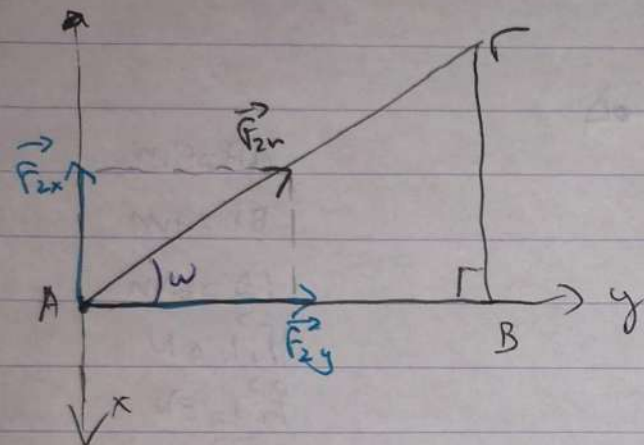 Γ
F⃗₂ₙ
F⃗₂ₓ
ω
A
y
F⃗₂y
B
x